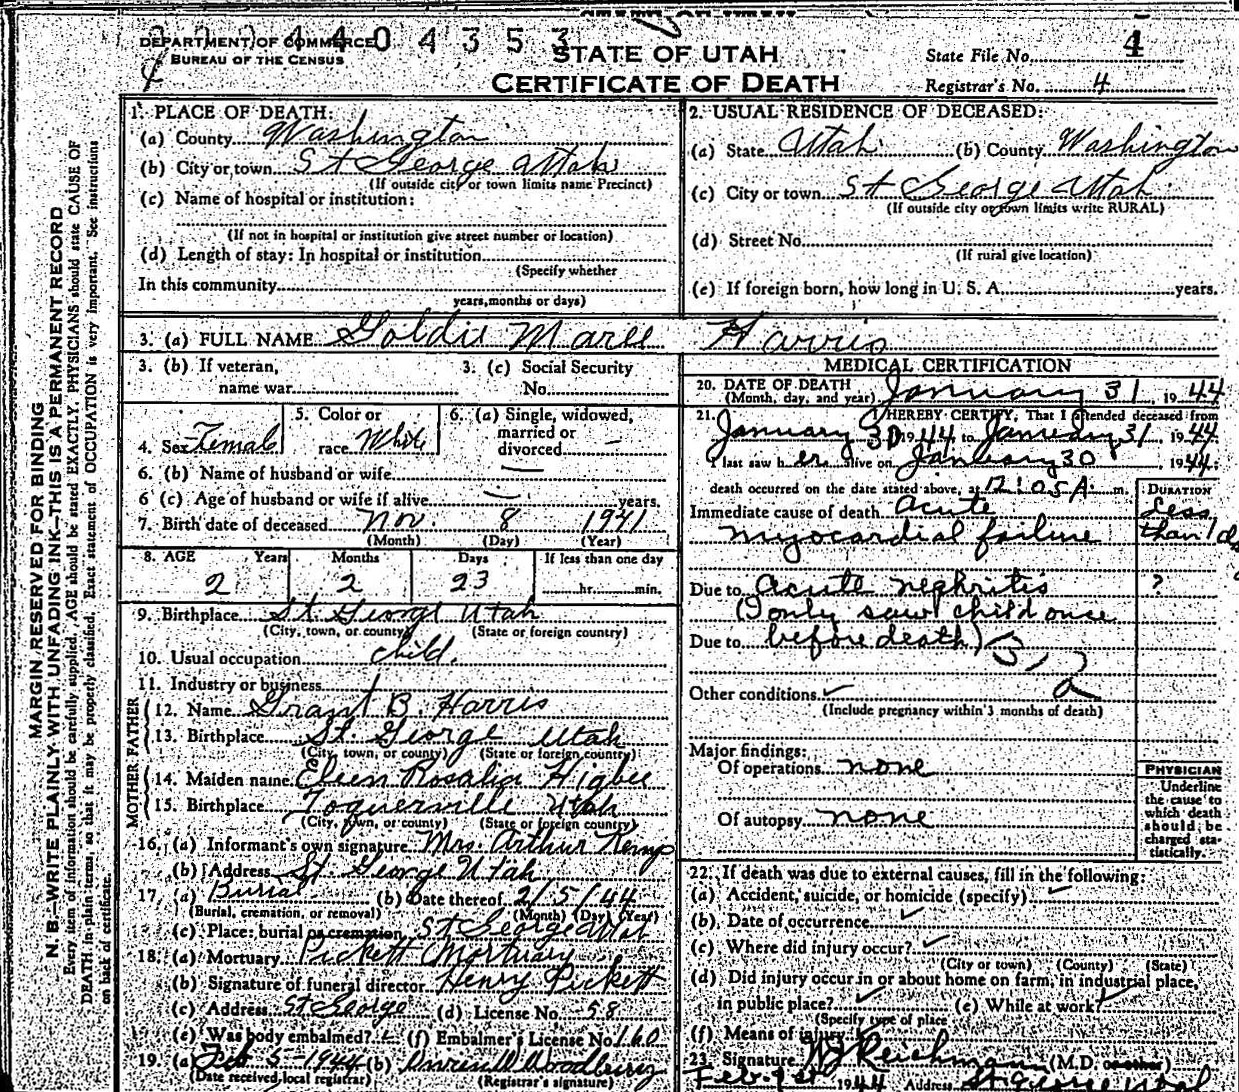 0 0 0 4 4 0 4 3 5 3
DEPARTMENT OF COMMERCE
BUREAU OF THE CENSUS
STATE OF UTAH
CERTIFICATE OF DEATH
State File No. 4
Registrar's No. 4
MARGIN RESERVED FOR BINDING
N. B.—WRITE PLAINLY WITH UNFADING INK—THIS IS A PERMANENT RECORD
Every item of information should be carefully supplied. AGE should be stated EXACTLY. PHYSICIANS should state CAUSE OF
DEATH in plain terms, so that it may be properly classified. Exact statement of OCCUPATION is very important. See instructions
on back of certificate.
1. PLACE OF DEATH:
(a) County Washington
(b) City or town St George Utah
(If outside city or town limits name Precinct)
(c) Name of hospital or institution:
(If not in hospital or institution give street number or location)
(d) Length of stay: In hospital or institution
(Specify whether
In this community
years, months or days)
2. USUAL RESIDENCE OF DECEASED:
(a) State Utah (b) County Washington
(c) City or town St George Utah
(If outside city or town limits write RURAL)
(d) Street No.
(If rural give location)
(e) If foreign born, how long in U. S. A. years.
3. (a) FULL NAME Goldie Maree Harris
3. (b) If veteran,
name war
3. (c) Social Security
No.
4. Sex Female
5. Color or
race White
6. (a) Single, widowed,
married or
divorced —
6. (b) Name of husband or wife —
6 (c) Age of husband or wife if alive — years.
7. Birth date of deceased Nov. 8 1941
(Month) (Day) (Year)
8. AGE Years Months Days If less than one day
2 2 23 hr. min.
9. Birthplace St George Utah
(City, town, or county) (State or foreign country)
10. Usual occupation child.
11. Industry or business
FATHER
12. Name Grant B. Harris
13. Birthplace St. George Utah
(City, town, or county) (State or foreign country)
MOTHER
14. Maiden name Rosalia Higbee
15. Birthplace Toquerville Utah
(City, town, or county) (State or foreign country)
16. (a) Informant's own signature Mrs. Arthur Kemp
(b) Address St. George Utah
17. (a) Burial (b) Date thereof 2/5/44
(Burial, cremation, or removal) (Month) (Day) (Year)
(c) Place: burial or cremation St George Utah
18. (a) Mortuary Pickett Mortuary
(b) Signature of funeral director Henry Pickett
(c) Address St George (d) License No. 58
(e) Was body embalmed? (f) Embalmer's License No. 160
19. (a) Feb 5-1944 (b)
(Date received local registrar) (Registrar's signature)
MEDICAL CERTIFICATION
20. DATE OF DEATH
(Month, day, and year) January 31, 1944
21. I HEREBY CERTIFY, That I attended deceased from
January 30 1944 to January 31, 1944
I last saw her alive on January 30, 1944:
death occurred on the date stated above, at 12:05 A. m.
DURATION
Immediate cause of death acute Less
myocardial failure than 1 day
Due to acute nephritis ?
(I only saw child once
Due to before death)
Other conditions
(Include pregnancy within 3 months of death)
Major findings:
Of operations none
Of autopsy none
PHYSICIAN
Underline
the cause to
which death
should be
charged sta-
tistically.
22. If death was due to external causes, fill in the following:
(a) Accident, suicide, or homicide (specify)
(b) Date of occurrence
(c) Where did injury occur?
(City or town) (County) (State)
(d) Did injury occur in or about home on farm, in industrial place,
in public place? (e) While at work?
(Specify type of place
(f) Means of injury
23. Signature Reichman (M.D. or other)
1944 Address